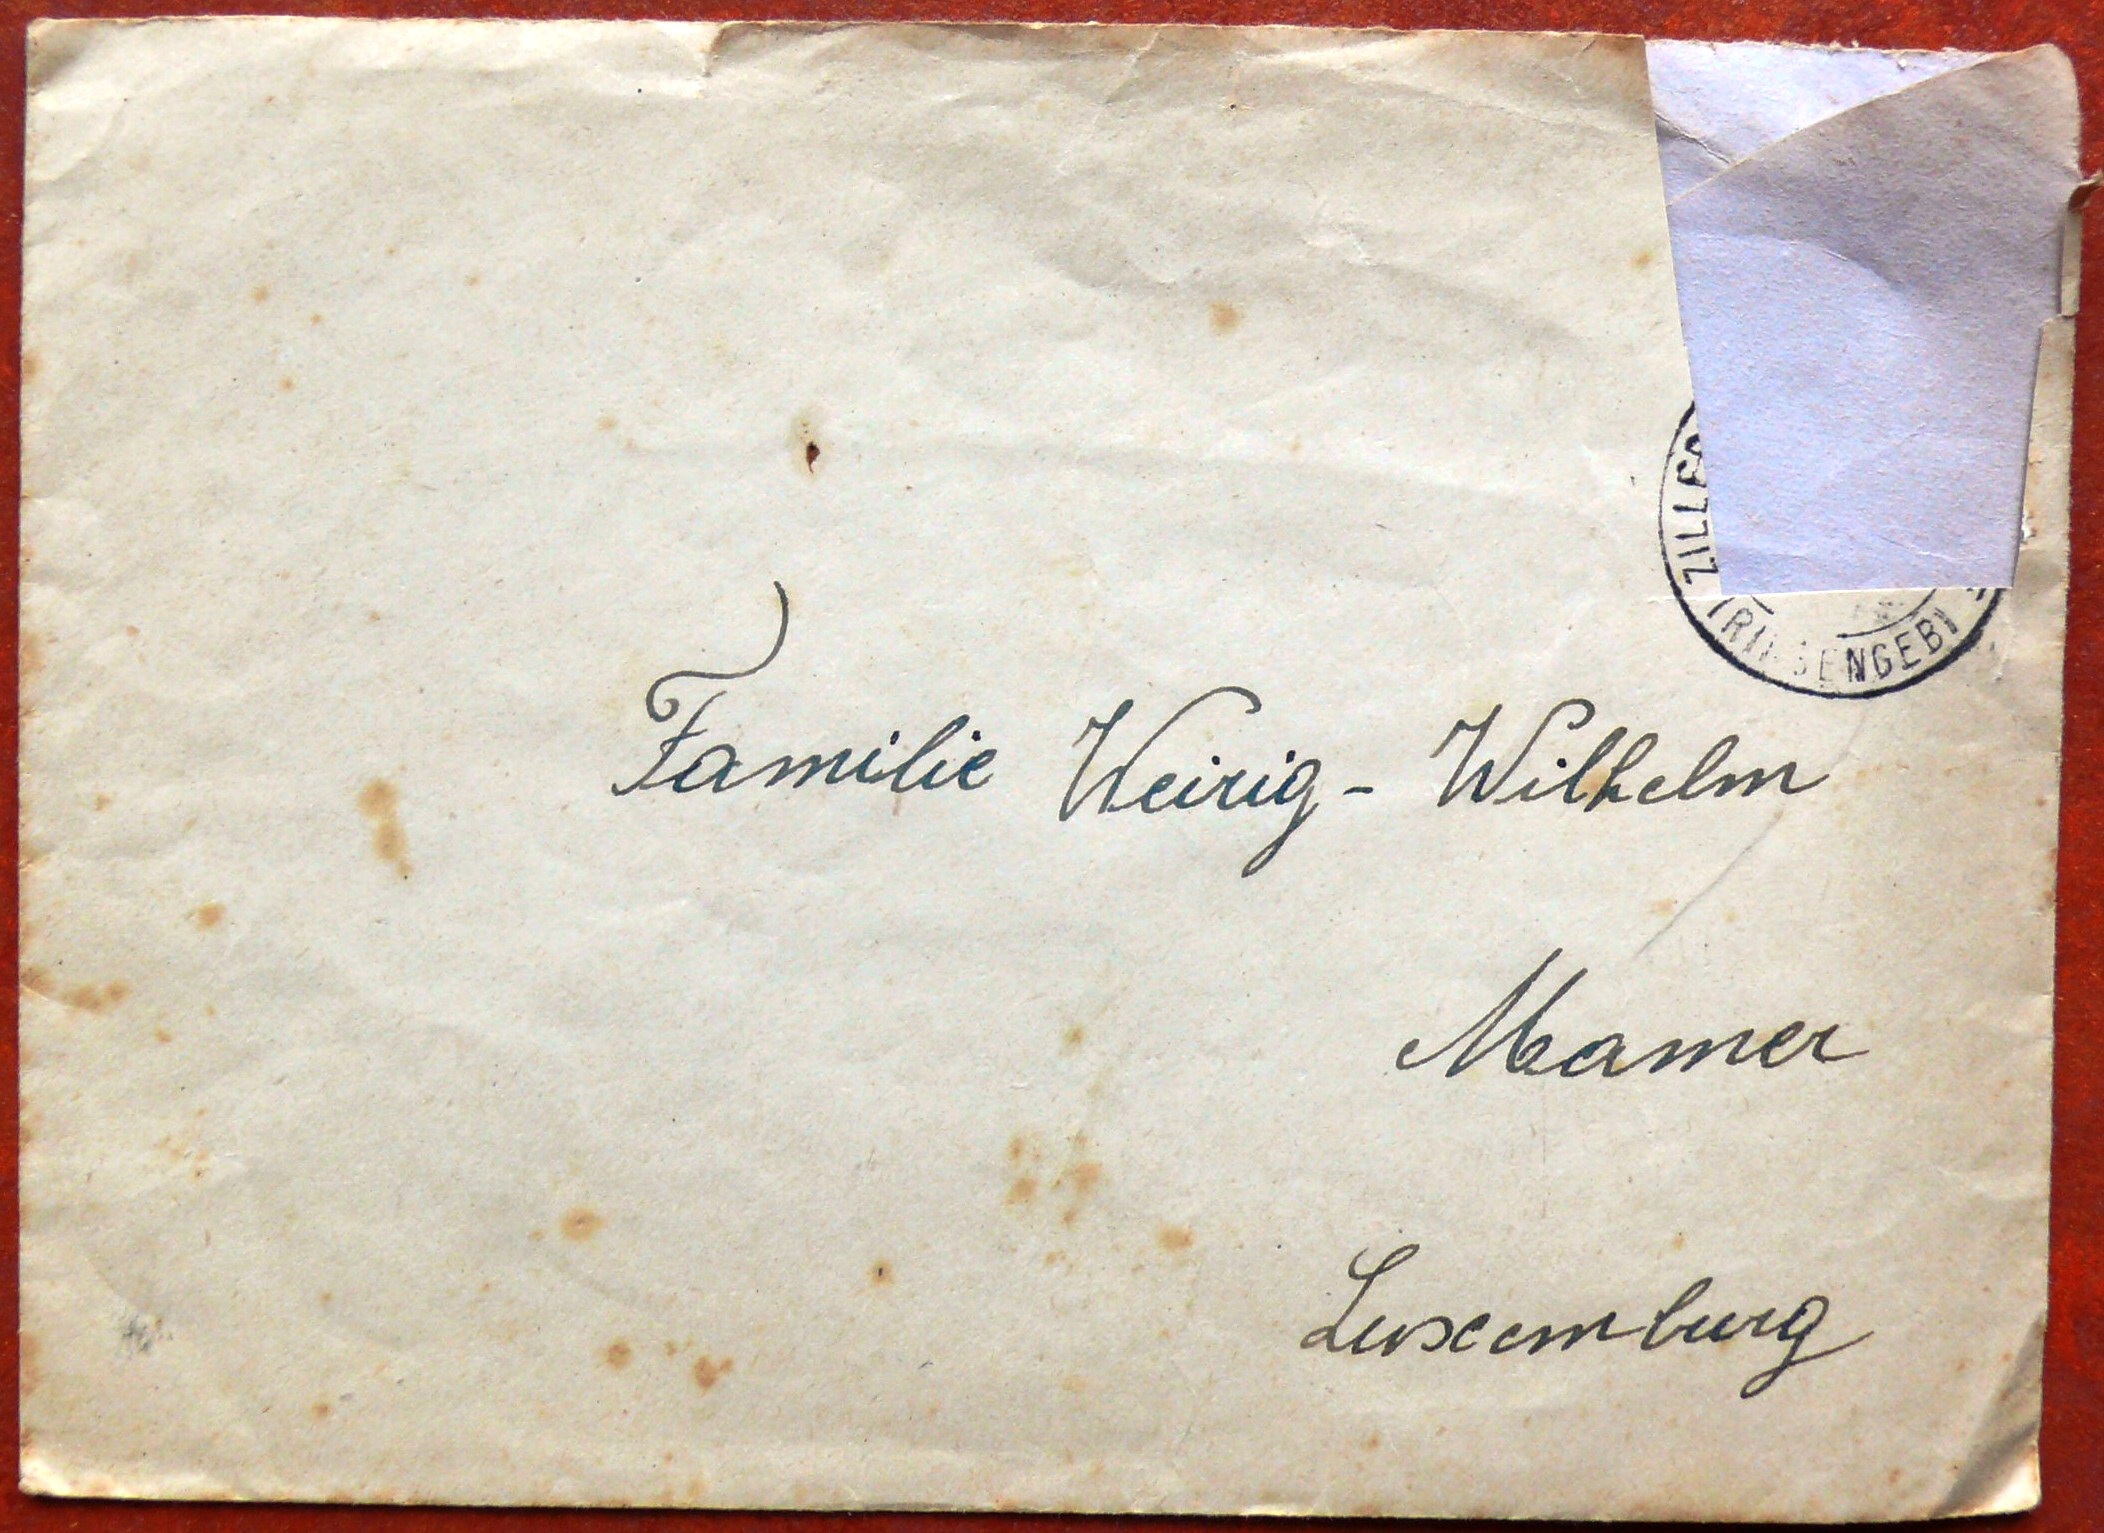 ZILLE
(RIESENGEB
Familie Weirig - Wilhelm
Mamer
Luxemburg